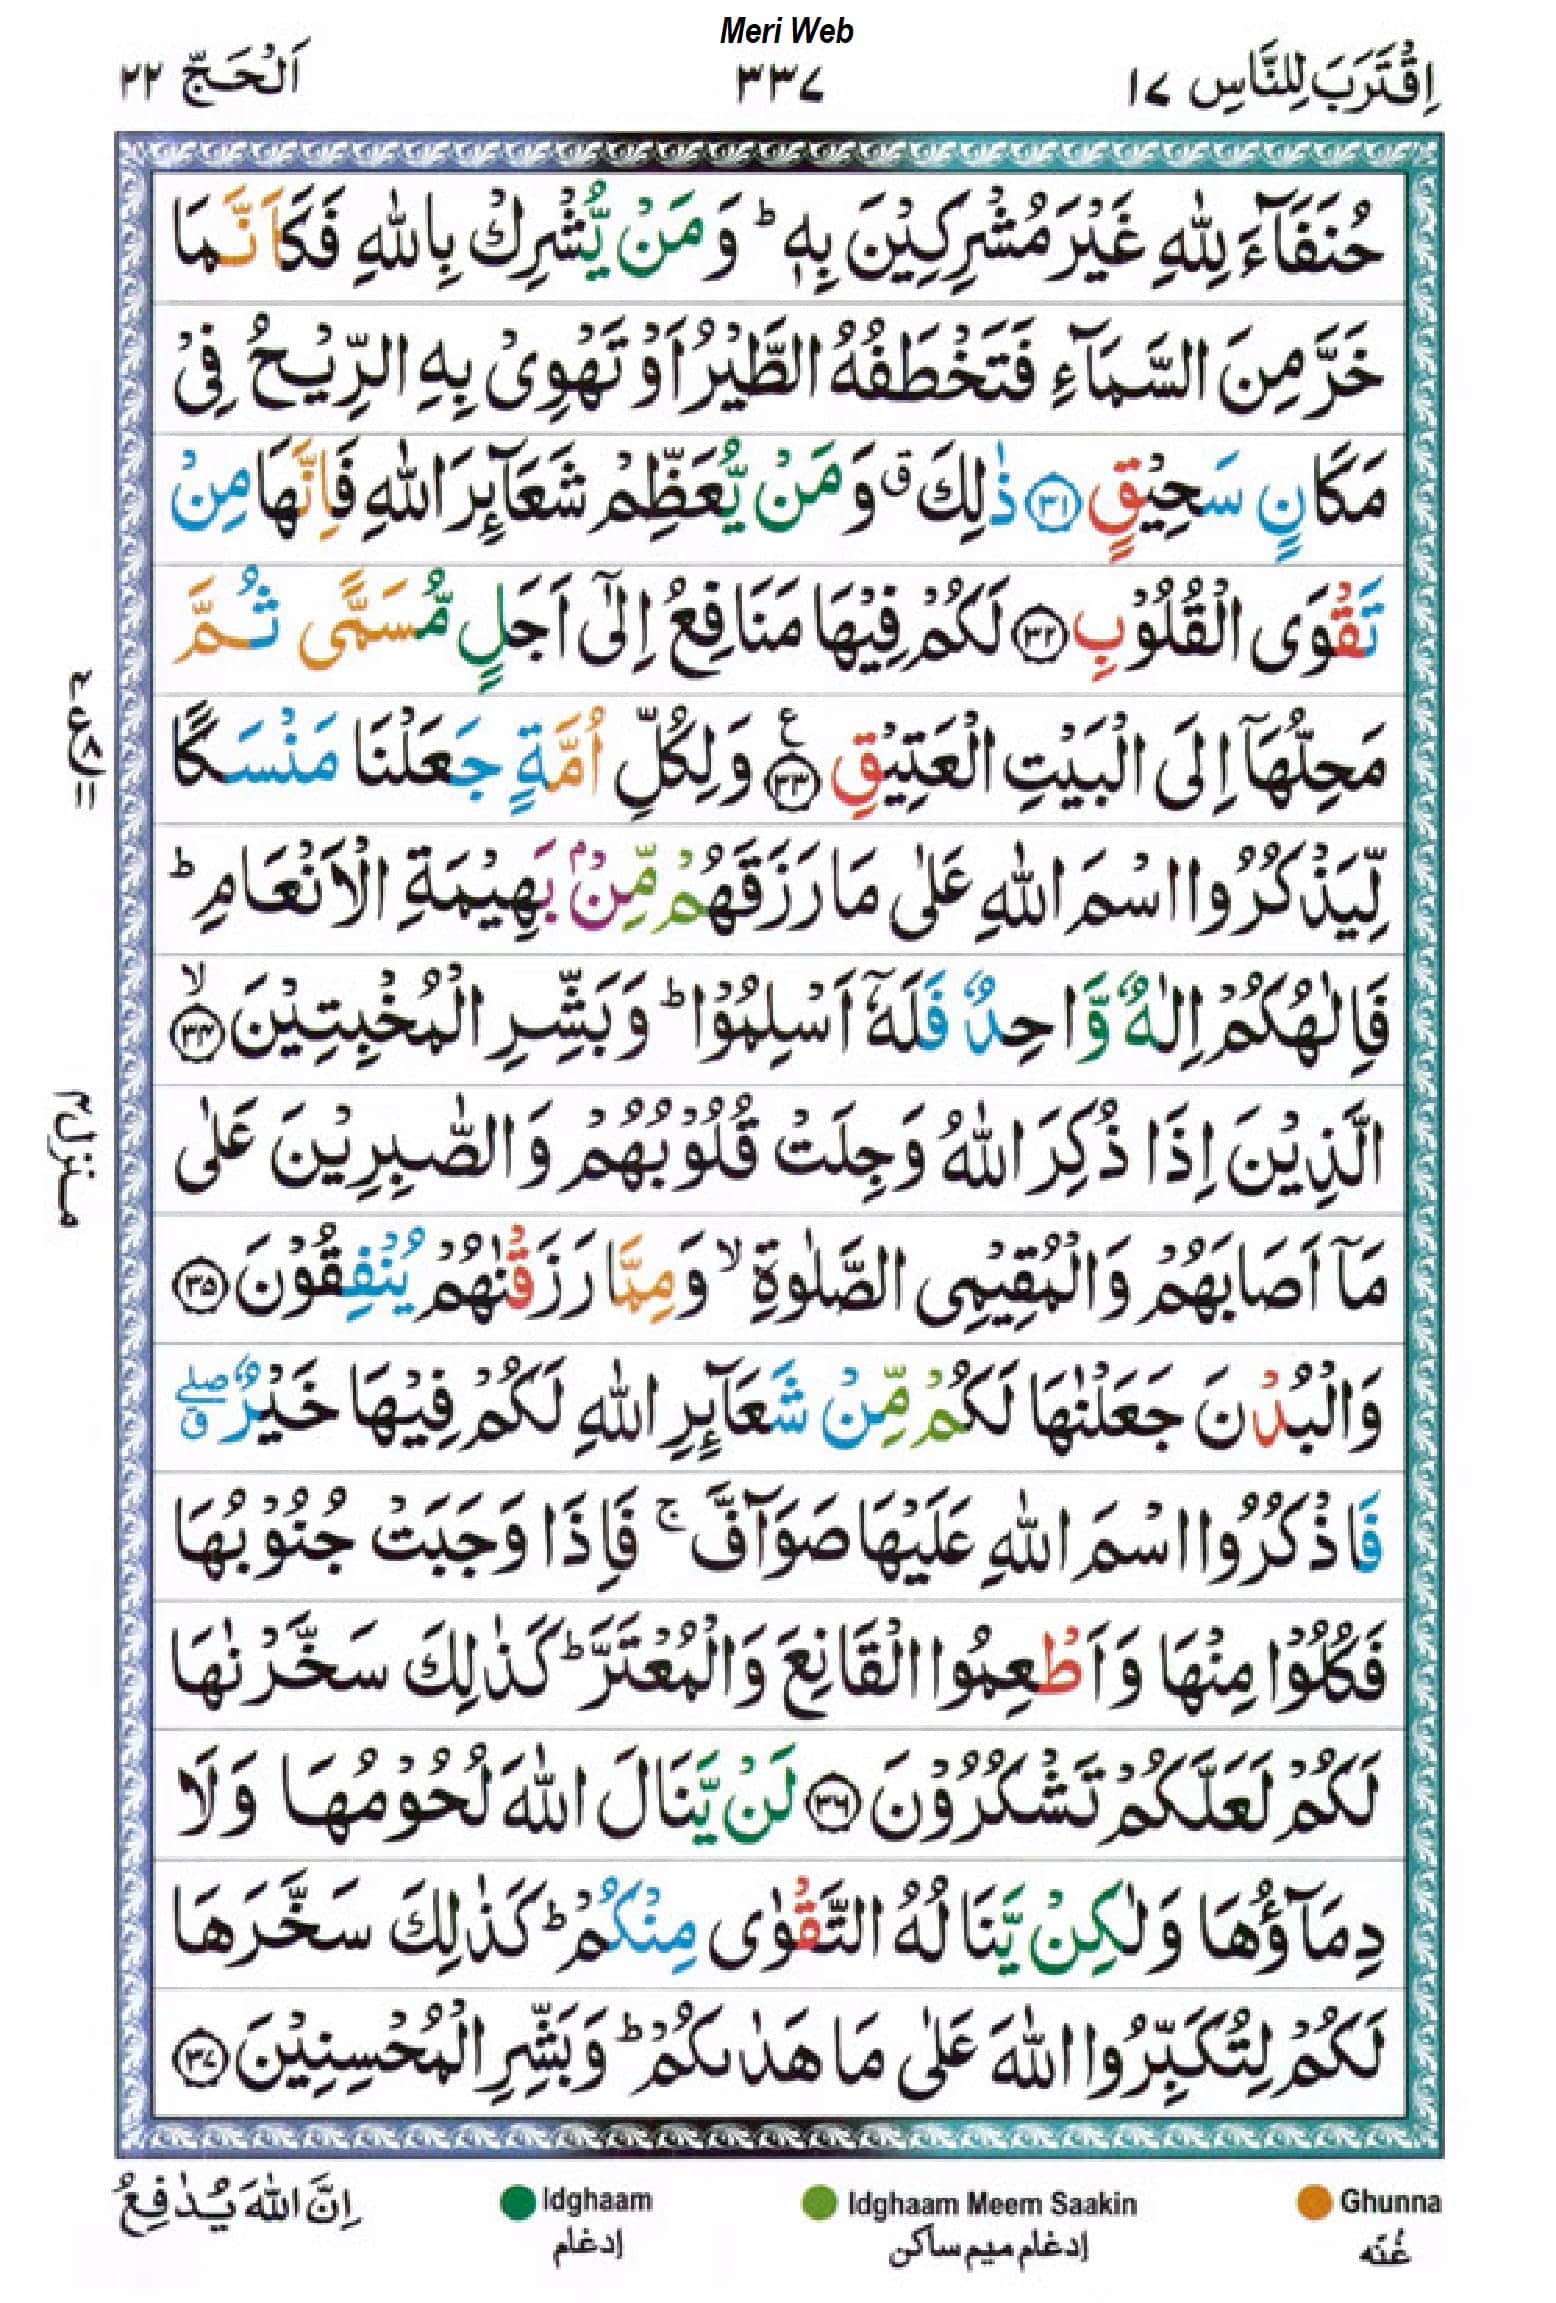 Meri Web
اِقْتَرَبَ لِلنَّاسِ ۱۷
۳۳۷
اَلْحَجّ ۲۲
حُنَفَآءَ لِلّٰهِ غَیْرَ مُشْرِكِیْنَ بِهٖ ؕ وَمَنْ یُّشْرِكْ بِاللّٰهِ فَكَاَنَّمَا
خَرَّ مِنَ السَّمَآءِ فَتَخْطَفُهُ الطَّیْرُ اَوْ تَهْوِیْ بِهِ الرِّیْحُ فِیْ
مَكَانٍ سَحِیْقٍ ۳۱ ذٰلِكَ ۗ وَمَنْ یُّعَظِّمْ شَعَآىِٕرَ اللّٰهِ فَاِنَّهَا مِنْ
تَقْوَی الْقُلُوْبِ ۳۲ لَكُمْ فِیْهَا مَنَافِعُ اِلٰۤی اَجَلٍ مُّسَمًّی ثُمَّ
مَحِلُّهَاۤ اِلَی الْبَیْتِ الْعَتِیْقِ ۳۳ ع وَلِكُلِّ اُمَّةٍ جَعَلْنَا مَنْسَكًا
لِّیَذْكُرُوا اسْمَ اللّٰهِ عَلٰی مَا رَزَقَهُمْ مِّنْۢ بَهِیْمَةِ الْاَنْعَامِ ؕ
فَاِلٰهُكُمْ اِلٰهٌ وَّاحِدٌ فَلَهٗۤ اَسْلِمُوْا ؕ وَبَشِّرِ الْمُخْبِتِیْنَ ۙ ۳۴
الَّذِیْنَ اِذَا ذُكِرَ اللّٰهُ وَجِلَتْ قُلُوْبُهُمْ وَالصّٰبِرِیْنَ عَلٰی
مَاۤ اَصَابَهُمْ وَالْمُقِیْمِی الصَّلٰوةِ ۙ وَمِمَّا رَزَقْنٰهُمْ یُنْفِقُوْنَ ۳۵
وَالْبُدْنَ جَعَلْنٰهَا لَكُمْ مِّنْ شَعَآىِٕرِ اللّٰهِ لَكُمْ فِیْهَا خَیْرٌ ۖۗ
فَاذْكُرُوا اسْمَ اللّٰهِ عَلَیْهَا صَوَآفَّ ۚ فَاِذَا وَجَبَتْ جُنُوْبُهَا
فَكُلُوْا مِنْهَا وَاَطْعِمُوا الْقَانِعَ وَالْمُعْتَرَّ ؕ كَذٰلِكَ سَخَّرْنٰهَا
لَكُمْ لَعَلَّكُمْ تَشْكُرُوْنَ ۳۶ لَنْ یَّنَالَ اللّٰهَ لُحُوْمُهَا وَلَا
دِمَآؤُهَا وَلٰكِنْ یَّنَالُهُ التَّقْوٰی مِنْكُمْ ؕ كَذٰلِكَ سَخَّرَهَا
لَكُمْ لِتُكَبِّرُوا اللّٰهَ عَلٰی مَا هَدٰىكُمْ ؕ وَبَشِّرِ الْمُحْسِنِیْنَ ۳۷
منزل۴
اِنَّ اللّٰهَ یُدٰفِعُ
Idghaam
إدغام
Idghaam Meem Saakin
إدغام میم ساكن
Ghunna
غُنّه